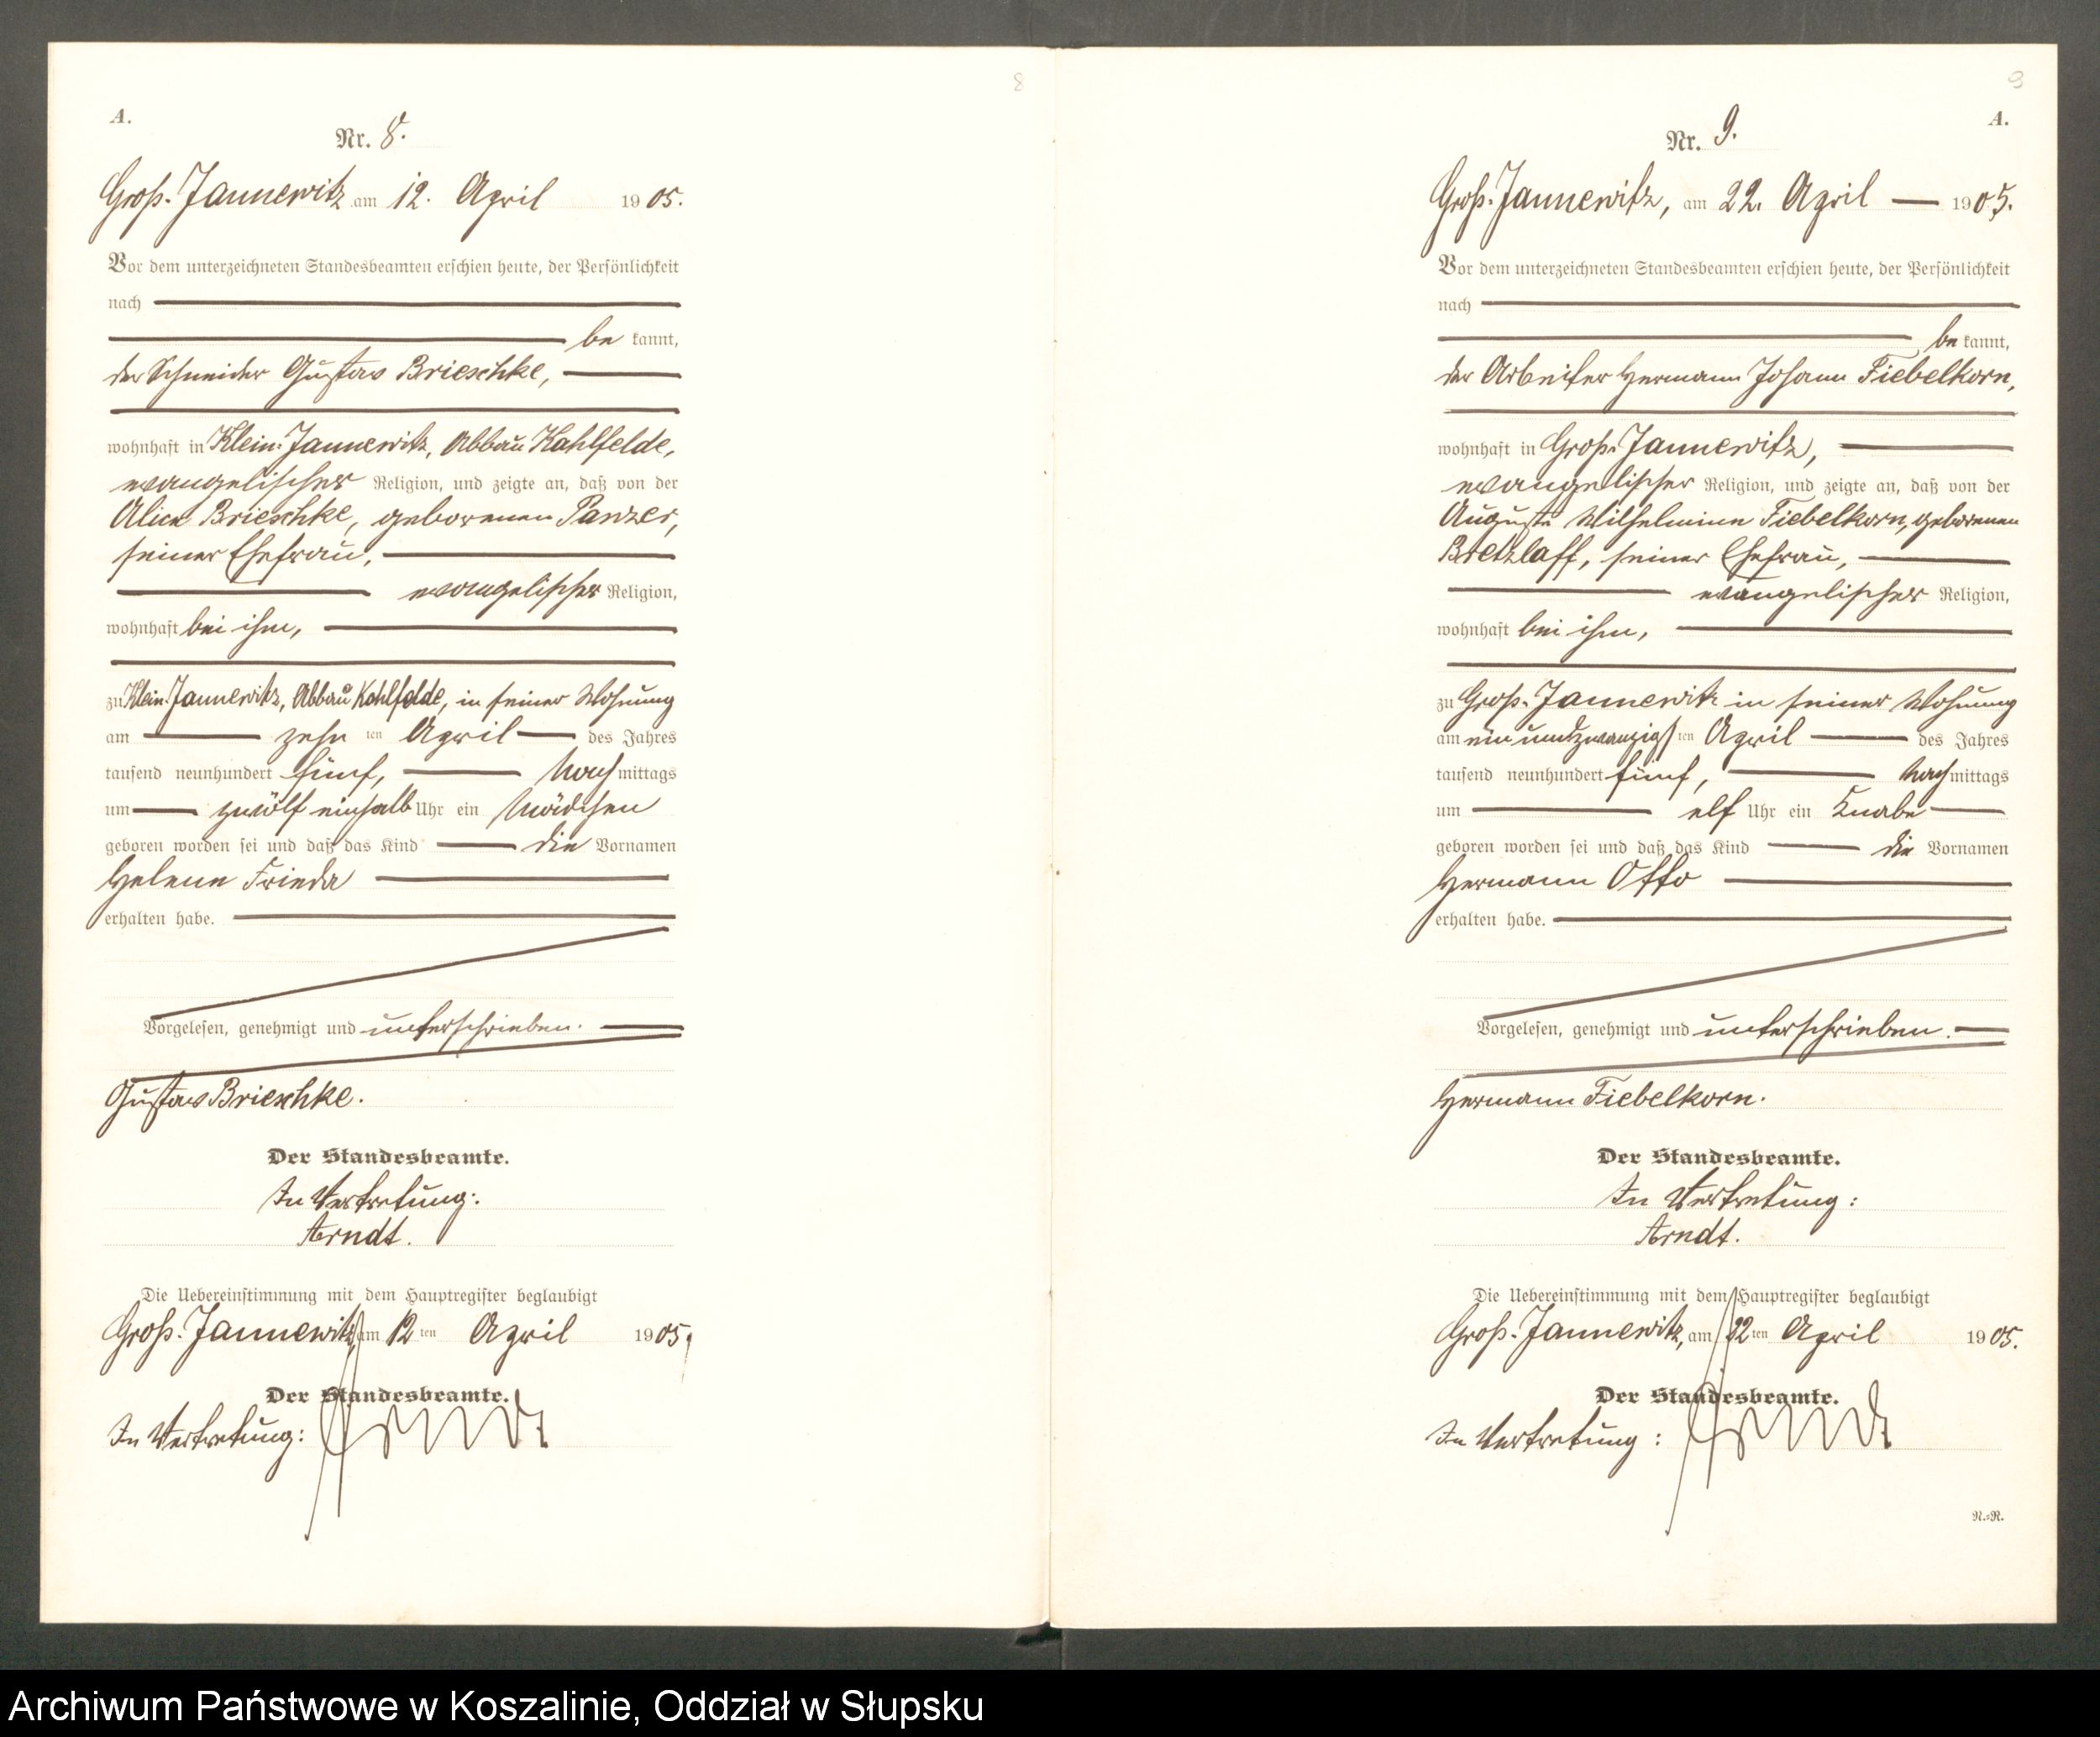 8
A.
Nr. 8.
Groß-Jannewitz am 12. April 1905.
Vor dem unterzeichneten Standesbeamten erschien heute, der Persönlichkeit
nach
be kannt,
der Schneider Gustav Brieschke,
wohnhaft in Klein-Jannewitz, Abbau Kahlfelde,
evangelischer Religion, und zeigte an, daß von der
Alice Brieschke, geborenen Panzer,
seiner Ehefrau,
evangelischer Religion,
wohnhaft bei ihm,
zu Klein-Jannewitz, Abbau Kahlfelde, in seiner Wohnung
am zehn ten April des Jahres
tausend neunhundert fünf, Nachmittags
um zwölf einhalb Uhr ein Mädchen
geboren worden sei und daß das Kind die Vornamen
Helene Frieda
erhalten habe.
Vorgelesen, genehmigt und unterschrieben.
Gustav Brieschke.
Der Standesbeamte.
In Vertretung:
Arndt.
Die Uebereinstimmung mit dem Hauptregister beglaubigt
Groß-Jannewitz, am 12 ten April 1905.
Der Standesbeamte.
In Vertretung: Arndt
9
A.
Nr. 9.
Groß-Jannewitz, am 22. April 1905.
Vor dem unterzeichneten Standesbeamten erschien heute, der Persönlichkeit
nach
be kannt,
der Arbeiter Hermann Johann Fiebelkorn,
wohnhaft in Groß-Jannewitz,
evangelischer Religion, und zeigte an, daß von der
Auguste Wilhelmine Fiebelkorn, geborenen
Bretzlaff, seiner Ehefrau,
evangelischer Religion,
wohnhaft bei ihm,
zu Groß-Jannewitz in seiner Wohnung
am ein und zwanzigsten April des Jahres
tausend neunhundert fünf, Nachmittags
um elf Uhr ein Knabe
geboren worden sei und daß das Kind die Vornamen
Hermann Otto
erhalten habe.
Vorgelesen, genehmigt und unterschrieben.
Hermann Fiebelkorn.
Der Standesbeamte.
In Vertretung:
Arndt.
Die Uebereinstimmung mit dem Hauptregister beglaubigt
Groß-Jannewitz, am 22 ten April 1905.
Der Standesbeamte.
In Vertretung: Arndt
N.=R.
Archiwum Państwowe w Koszalinie, Oddział w Słupsku